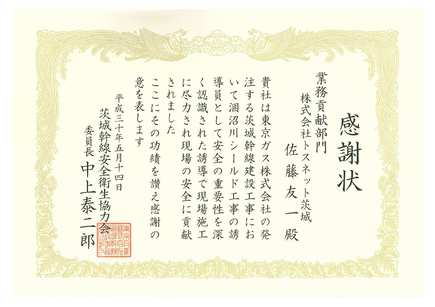 感謝状
業務貢献部門
株式会社トスネット茨城
佐藤友一殿
貴社は東京ガス株式会社の発
注する茨城幹線建設工事にお
いて涸沼川シールド工事の誘
導員として安全の重要性を深
く認識された誘導で現場施工
に尽力され現場の安全に貢献
されました
ここにその功績を讃え感謝の
意を表します
平成三十年五月十四日
茨城幹線安全衛生協力会
委員長 中上泰二郎